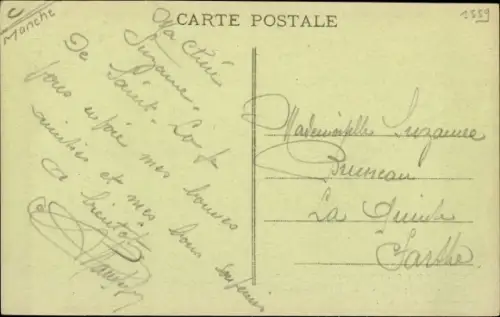 Manche
CARTE POSTALE
1559
Ma chère
Suzanne.
De Saint-Lo je
vous envoie mes bonnes
amitiés et mes bons souvenirs
A bientôt
Mademoiselle Suzanne
Bruneau
La Quinte
Sarthe